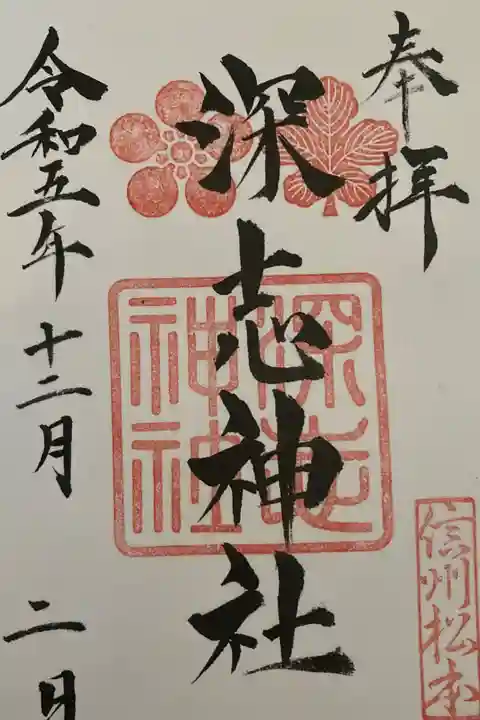 奉拝
深志神社
深志神社
信州松本
令和五年十二月二日